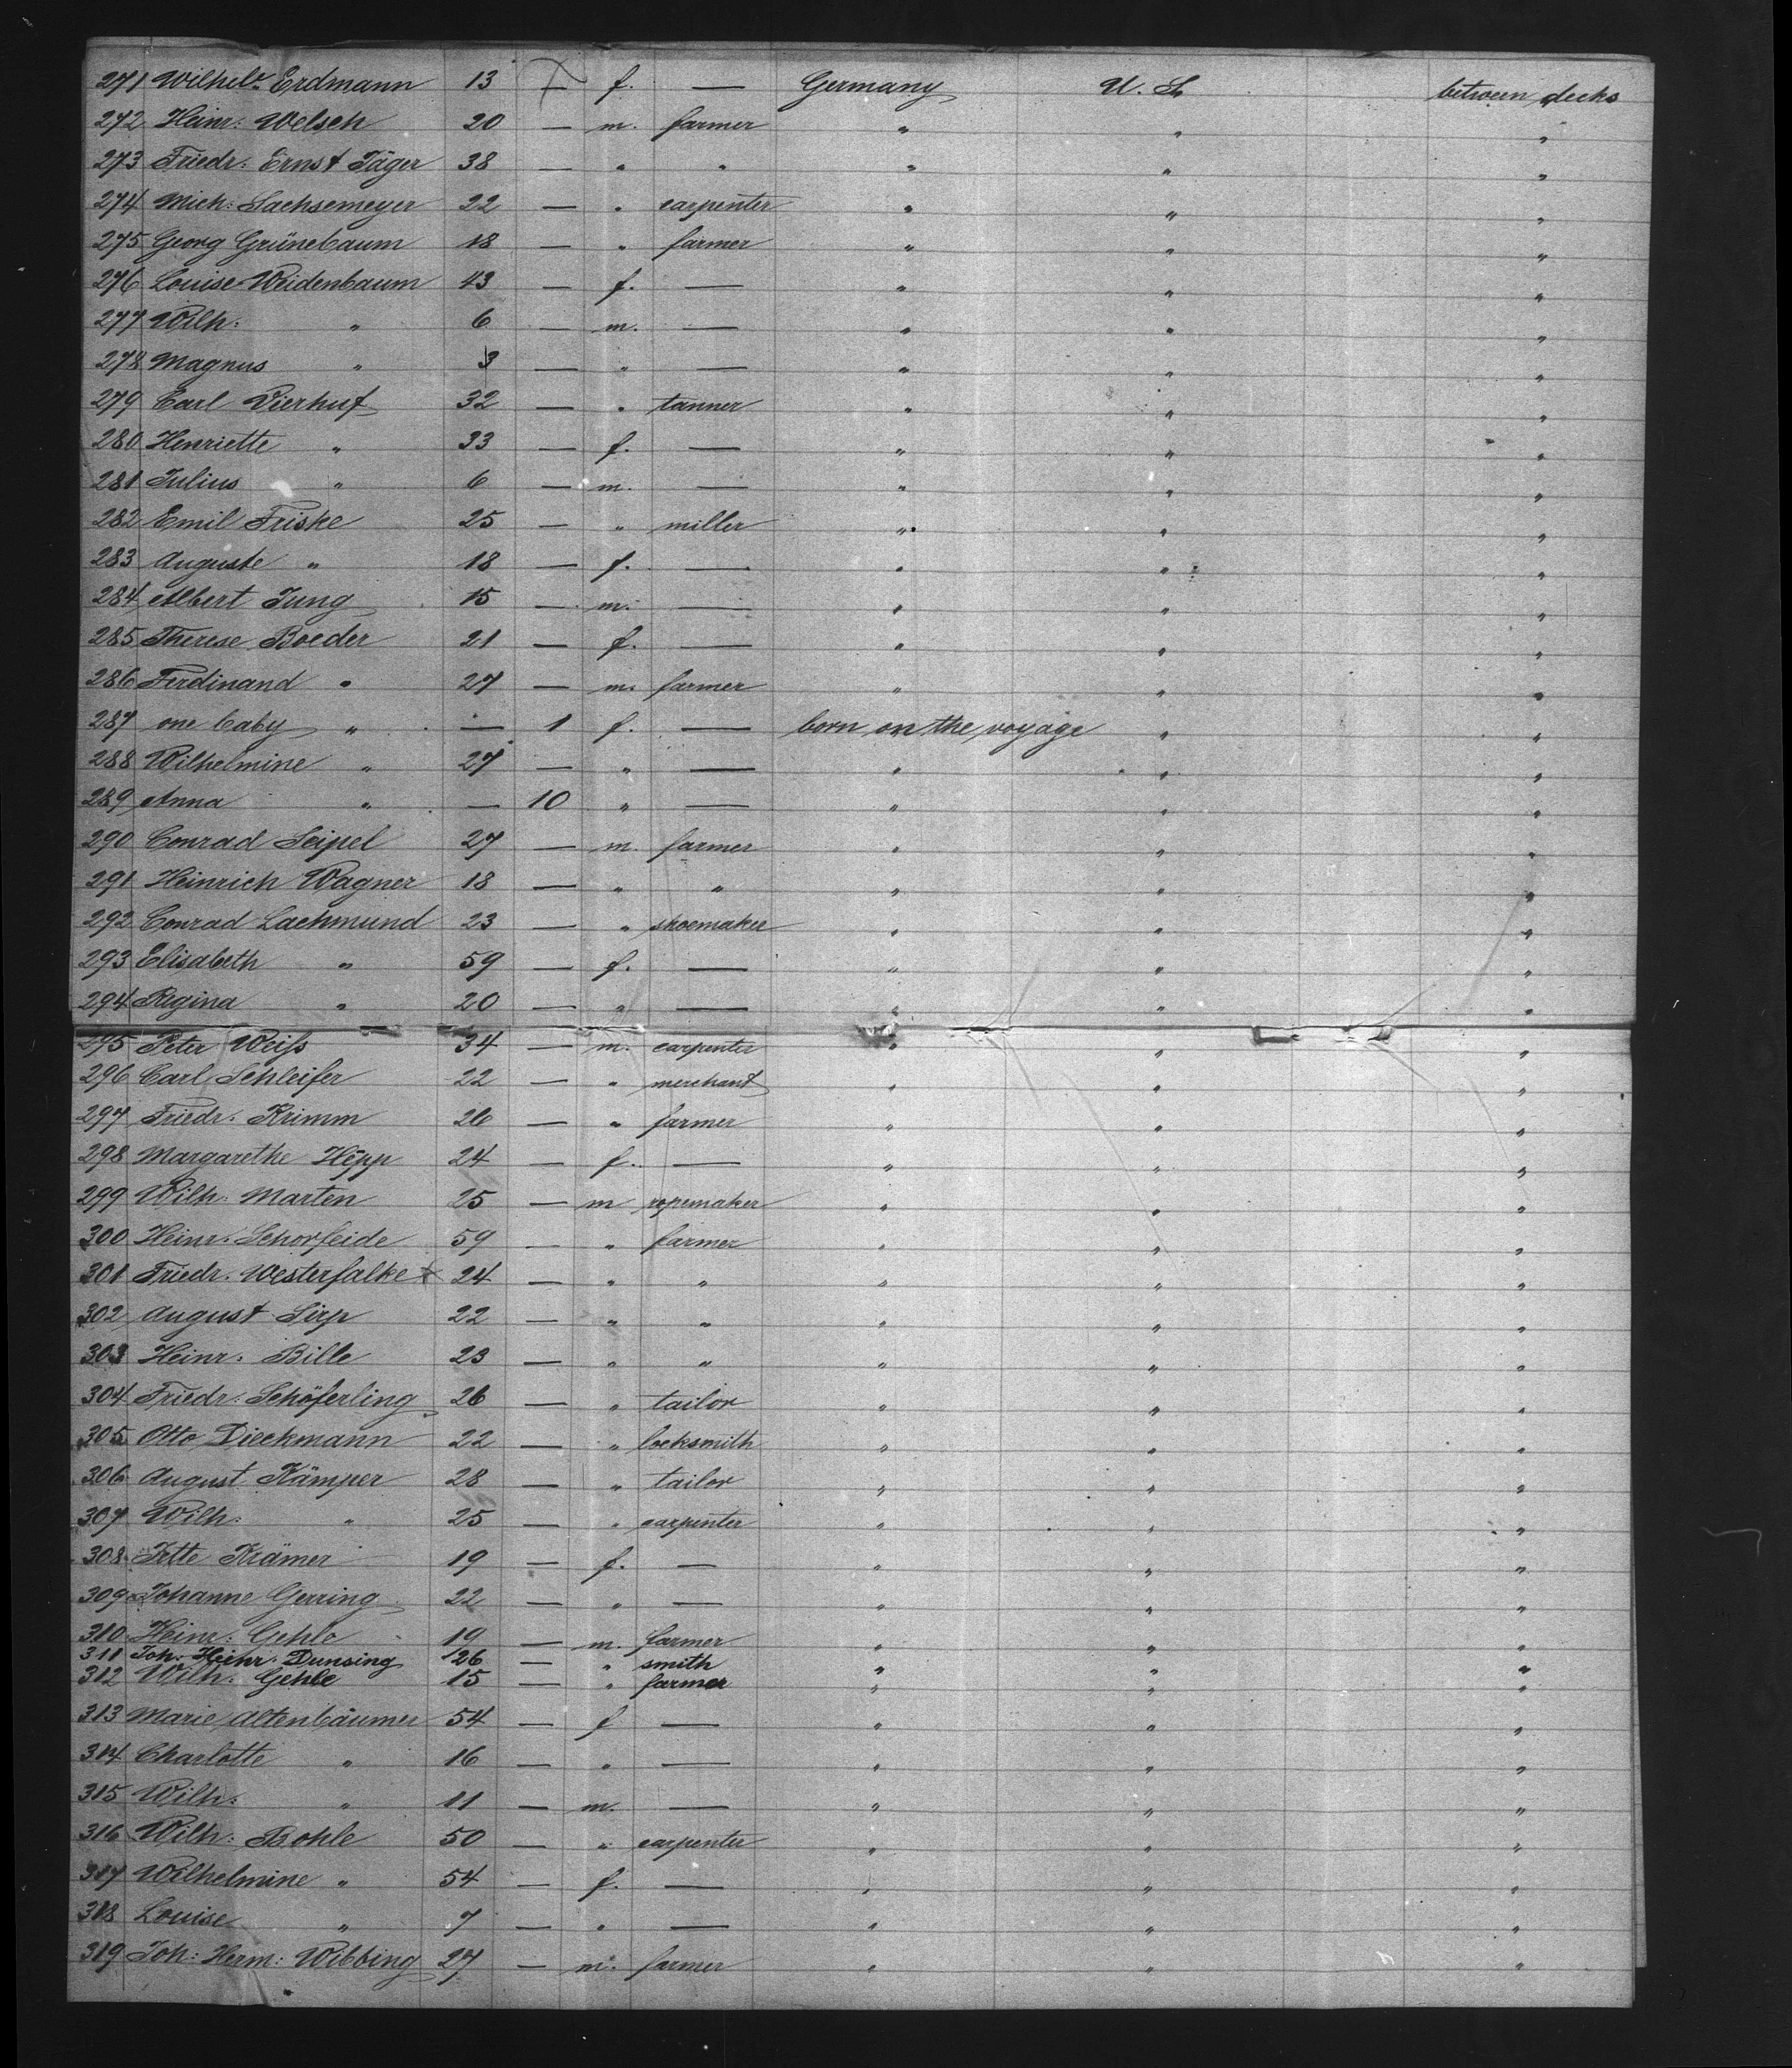 271 Wilhel. Erdmann 13 — f. — Germany U. S. between decks
272 Heinr: Welsch 20 — m. farmer " " "
273 Friedr: Ernst Jäger 38 — " " " " "
274 Mich: Sachsemeyer 22 — " carpenter " " "
275 Georg Grünebaum 18 — " farmer " " "
276 Louise Weidenbaum 43 — f. — " " "
277 Wilh: " 6 — m. — " " "
278 Magnus " 3 — " — " " "
279 Carl Vierhuf 32 — " tanner " " "
280 Henriette " 33 — f. — " " "
281 Julius " 6 — m. — " " "
282 Emil Friske 25 — " miller " " "
283 Auguste " 18 — f. — " " "
284 Albert Jung 15 — m. — " " "
285 Therese Boeder 21 — f. — " " "
286 Ferdinand " 27 — m. farmer " " "
287 one baby " — 1 f. — born on the voyage " "
288 Wilhelmine " 27 — " — " " "
289 Anna " — 10 " — " " "
290 Conrad Seipel 27 — m. farmer " " "
291 Heinrich Wagner 18 — " " " " "
292 Conrad Lachmund 23 — " shoemaker " " "
293 Elisabeth " 59 — f. — " " "
294 Regina " 20 — " — " " "
295 Peter Weiß 34 — m. carpenter " " "
296 Carl Schleifer 22 — " merchant " " "
297 Friedr. Krimm 26 — " farmer " " "
298 Margarethe Hepp 24 — f. — " " "
299 Wilh: Marten 25 — m ropemaker " " "
300 Heinr. Schorfeide 59 — " farmer " " "
301 Friedr. Westerfalke x 24 — " " " " "
302 August Sirp 22 — " " " " "
303 Heinr. Bille 23 — " " " " "
304 Friedr. Schöferling 26 — " tailor " " "
305 Otto Dieckmann 22 — " locksmith " " "
306 August Kämper 28 — " tailor " " "
307 Wilh. " 25 — " carpenter " " "
308 Jette Krämer 19 — f. — " " "
309 Johanne Gerring 22 — " — " " "
310 Heinr: Gehle 19 — m. farmer " " "
311 Joh. Heinr. Dunsing 26 — " smith " " "
312 Wilh. Gehle 15 — " farmer " " "
313 Marie Altenbäumer 54 — f — " " "
314 Charlotte " 16 — " — " " "
315 Wilh: " 11 — m. — " " "
316 Wilh: Bohle 50 — " carpenter " " "
317 Wilhelmine " 54 — f. — " " "
318 Louise " 7 — " — " " "
319 Joh: Herm: Wibbing 27 — m. farmer " " "